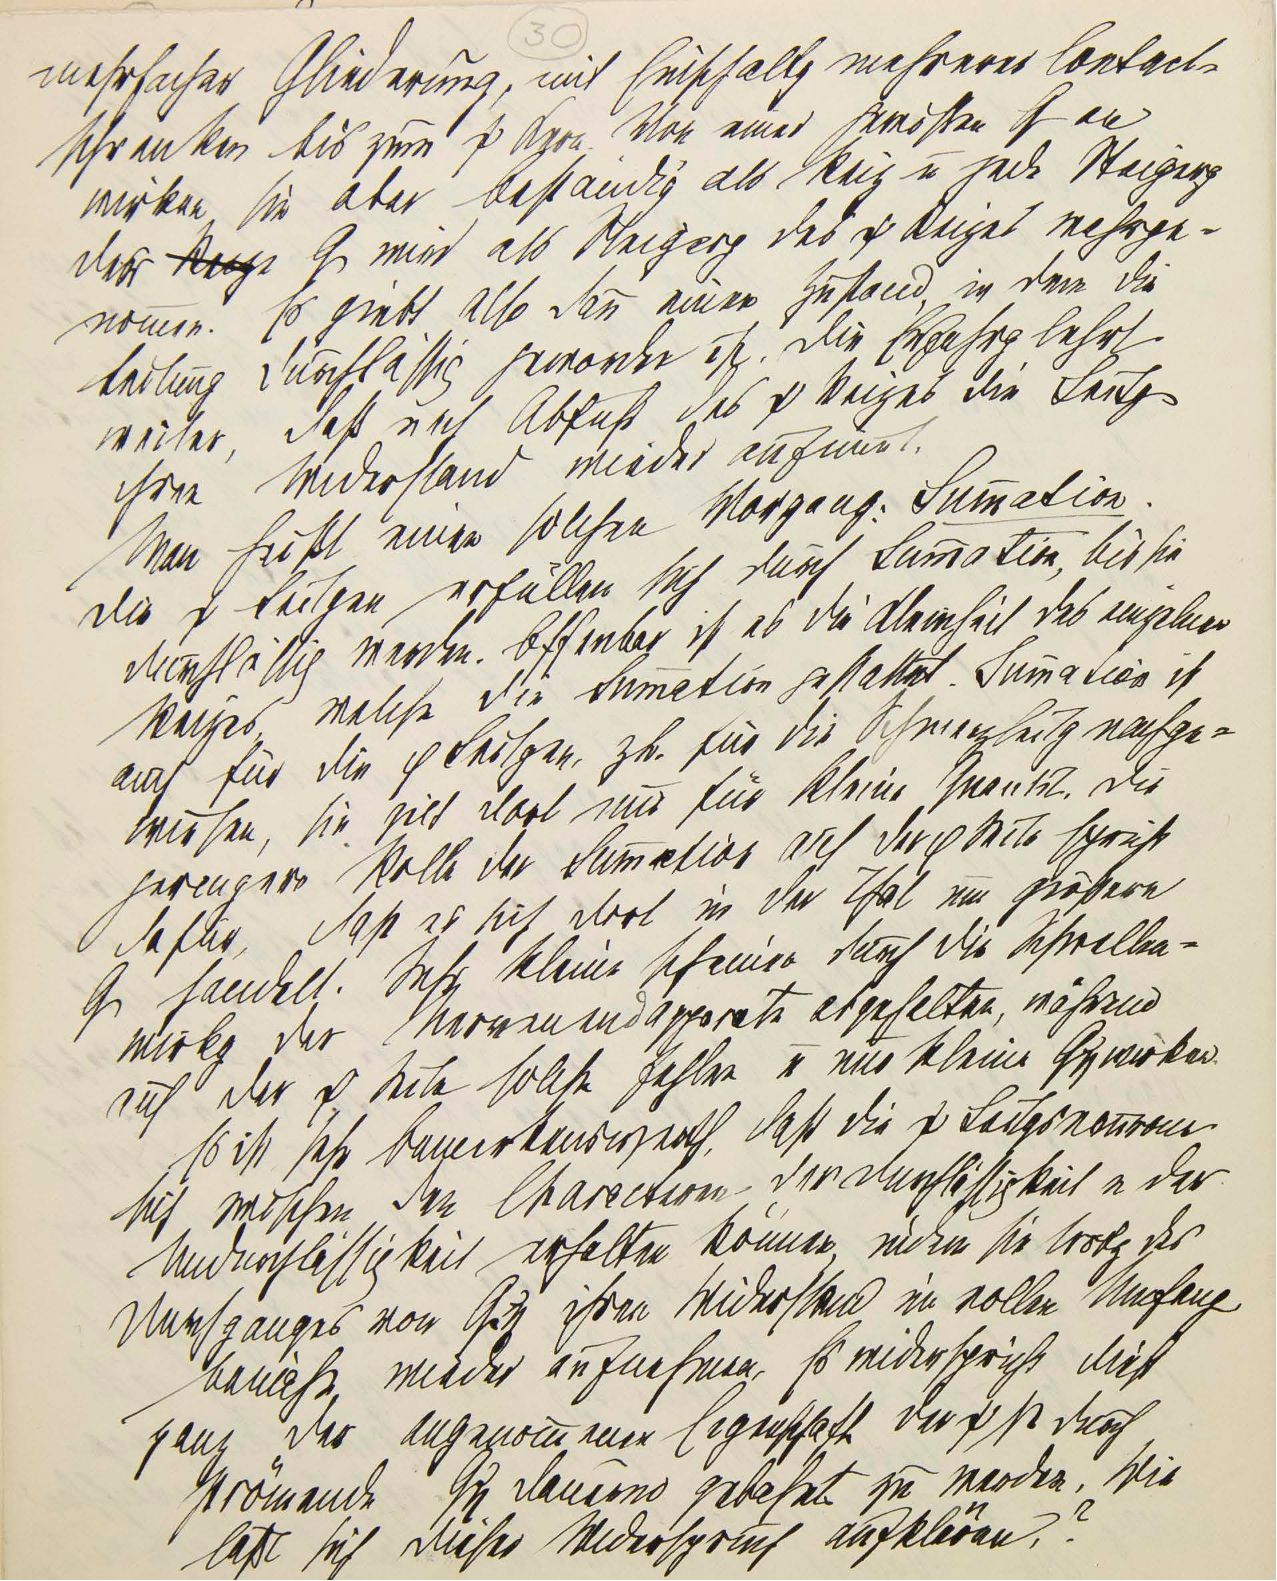 30
mehrfacher Gliederung, mit Einschaltg mehrerer Contact-
schranken bis zum ψ Kern. Von einer gewissen Q an
wirken sie aber beständig als Reiz u jede Steigerg
der Q wird als Steigerg des ψ Reizes wahrge-
nomen. Es giebt also dan einen Zustand, in dem die
Leitung durchlässig geworden ist. Die Erfahrg lehrt
weiter, daß nach Ablauf des ψ Reizes die Leitg
ihren Widerstand wieder aufnimt.
Man heißt einen solchen Vorgang: Sumation.
Die ψ Leitgen erfüllen sich durch Sumation, bis sie
durchlässig werden. Offenbar ist es die Kleinheit des einzelnen
Reizes, welche die Sumation gestattet. Sumation ist
auch für die φ Leitgen, zb. für die Schmerzleitg nachge-
wiesen, sie gilt dort nur für kleine Quantit. Die
geringere Rolle der Sumation auf der φ Seite spricht
dafür, daß es sich dort in der That um größere
Q handelt. Sehr kleine scheinen durch die Schwellen-
wirkg der Nervenendapparate abgehalten, während
auf der ψ Seite solche fehlen u nur kleine Qη wirken.
Es ist sehr bemerkenswerth, daß die ψ Leitgsneurone
sich zwischen den Characteren der Durchlässigkeit u der
Undurchlässigkeit erhalten können, indem sie trotz des
Durchganges von Qη ihren Widerstand in vollem Umfang
beinahe wieder aufnehmen. Es widerspricht dieß
ganz der angenomenen Eigenschaft der ψ N durch
strömende Qη dauernd gebahnt zu werden. Wie
läßt sich dieser Widerspruch aufklären?